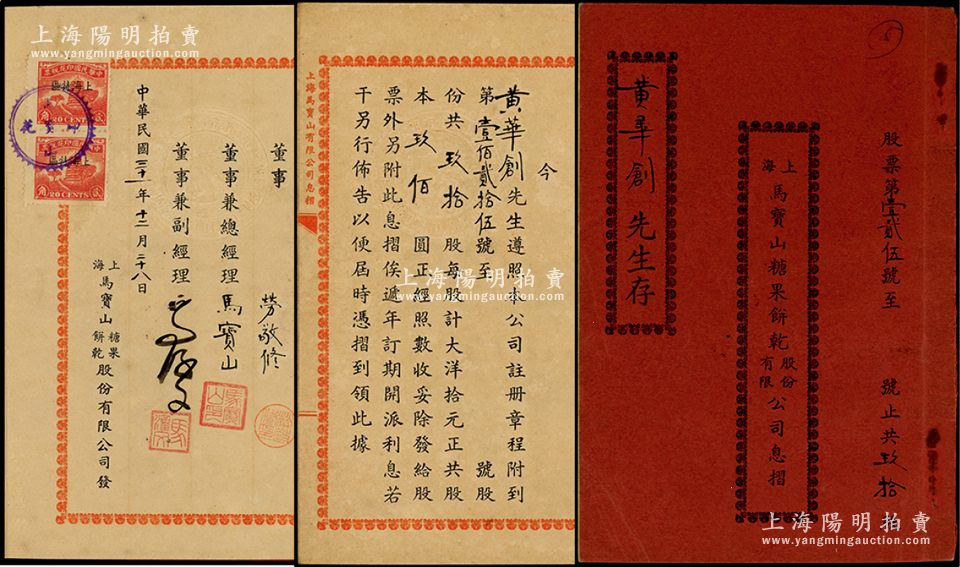 股票第壹貳伍號至 號止共玖拾
上海馬寶山糖果餅乾股份有限公司息摺
黃華創先生存
上海馬寶山有限公司息摺
今
黃華創先生遵照本公司註册章程附到
第壹佰貳拾伍號至 號股
份共玖拾股每股計大洋拾元正共股
本玖佰圓正經照數收妥除發給股
票外另附此息摺俟遞年訂期開派利息若
干另行佈告以便屆時憑摺到領此據
董事 勞敬修
董事兼總經理 馬寶山
董事兼副經理
中華民國三十一年十二月二十八日
上海馬寶山糖果餅乾股份有限公司發
中華民國印花稅票
上海
區
20 CENTS
貳角
上海
區
20 CENTS
貳角
上海陽明拍賣
www.yangmingauction.com
上海陽明拍賣
www.yangmingauction.com
上海陽明拍賣
www.yangmingauction.com
上海陽明拍賣
www.yangmingauction.com